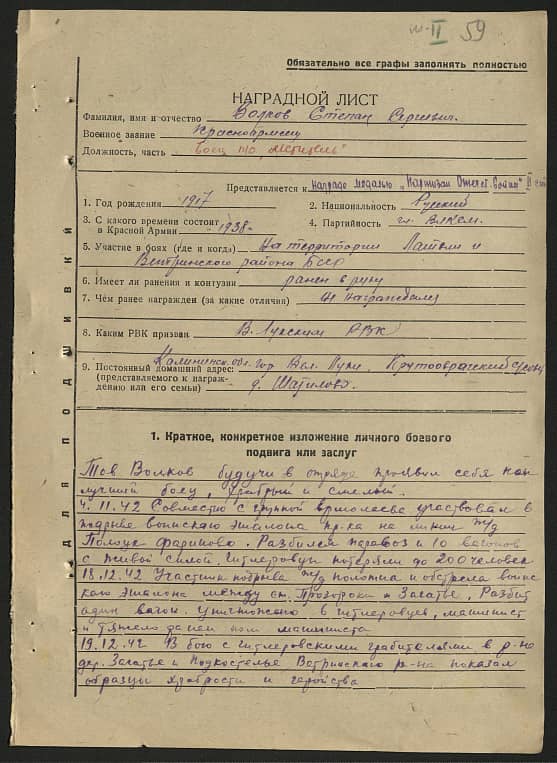 м-II 59
Обязательно все графы заполнять полностью
НАГРАДНОЙ ЛИСТ
Фамилия, имя и отчество Волков Степан Сергеевич.
Военное звание Красноармеец
Должность, часть боец п/о „Мститель"
Представляется к награде медалью „Партизан Отечест. Войны" II степ
1. Год рождения 1917 2. Национальность Русский
3. С какого времени состоит в Красной Армии 1938 4. Партийность чл. ВЛКСМ.
5. Участие в боях (где и когда) На территории Латвии и
Ветринского района БССР
6. Имеет ли ранения и контузии ранен в руку
7. Чем ранее награжден (за какие отличия) не награждался
8. Каким РВК призван В. Лукским РВК
9. Постоянный домашний адрес: Калининск. обл. гор Вел. Луки, Крутовражский с/совет
(представляемого к награж-
дению или его семьи) д. Шатилово.
1. Краткое, конкретное изложение личного боевого
подвига или заслуг
Тов Волков будучи в отряде проявил себя как
лучший боец, храбрый и смелый.
4.11.42 Совместно с группой Ермолаева участвовал в
подрыве воинского эшалона пр-ка на линии ж/д
Полоцк Фариново. Разбился паравоз и 10 вагонов
с живой силой, гитлеровцы потеряли до 200 человек
18.12.42 Участник подрыва ж/д полотна и обстрела воинс-
кого эшалона между ст. Прозороки и Загатье, Разбит
один вагон. Уничтожено 8 гитлеровцев, машинист
и тяжело ранен пом машиниста
19.12.42 В бою с гитлеровскими грабителями в р-не
дер. Загатье и Подкостелье Ветринского р-на показал
образцы храбрости и геройства
для подшивкой